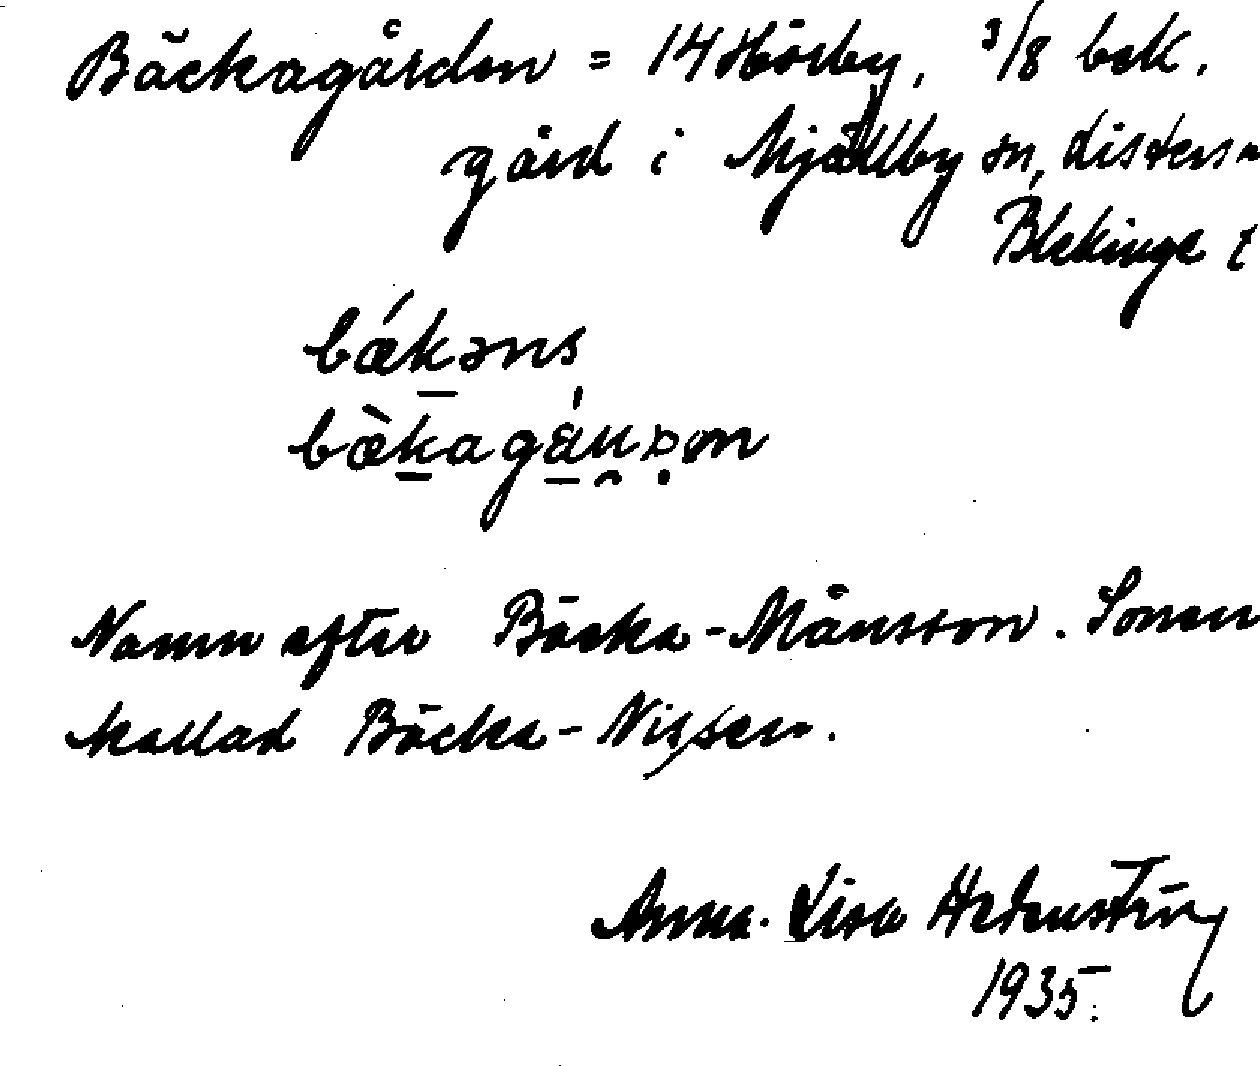 Bäckagården = 14 Hörby, 3/8 bek.
gård i Mjällby sn, Listers
Blekinge l
bǽkəns
Namn efter Bäcka-Månsson. Sonen
kallad Bäcka-Nissen.
Anna-Lisa
1935.